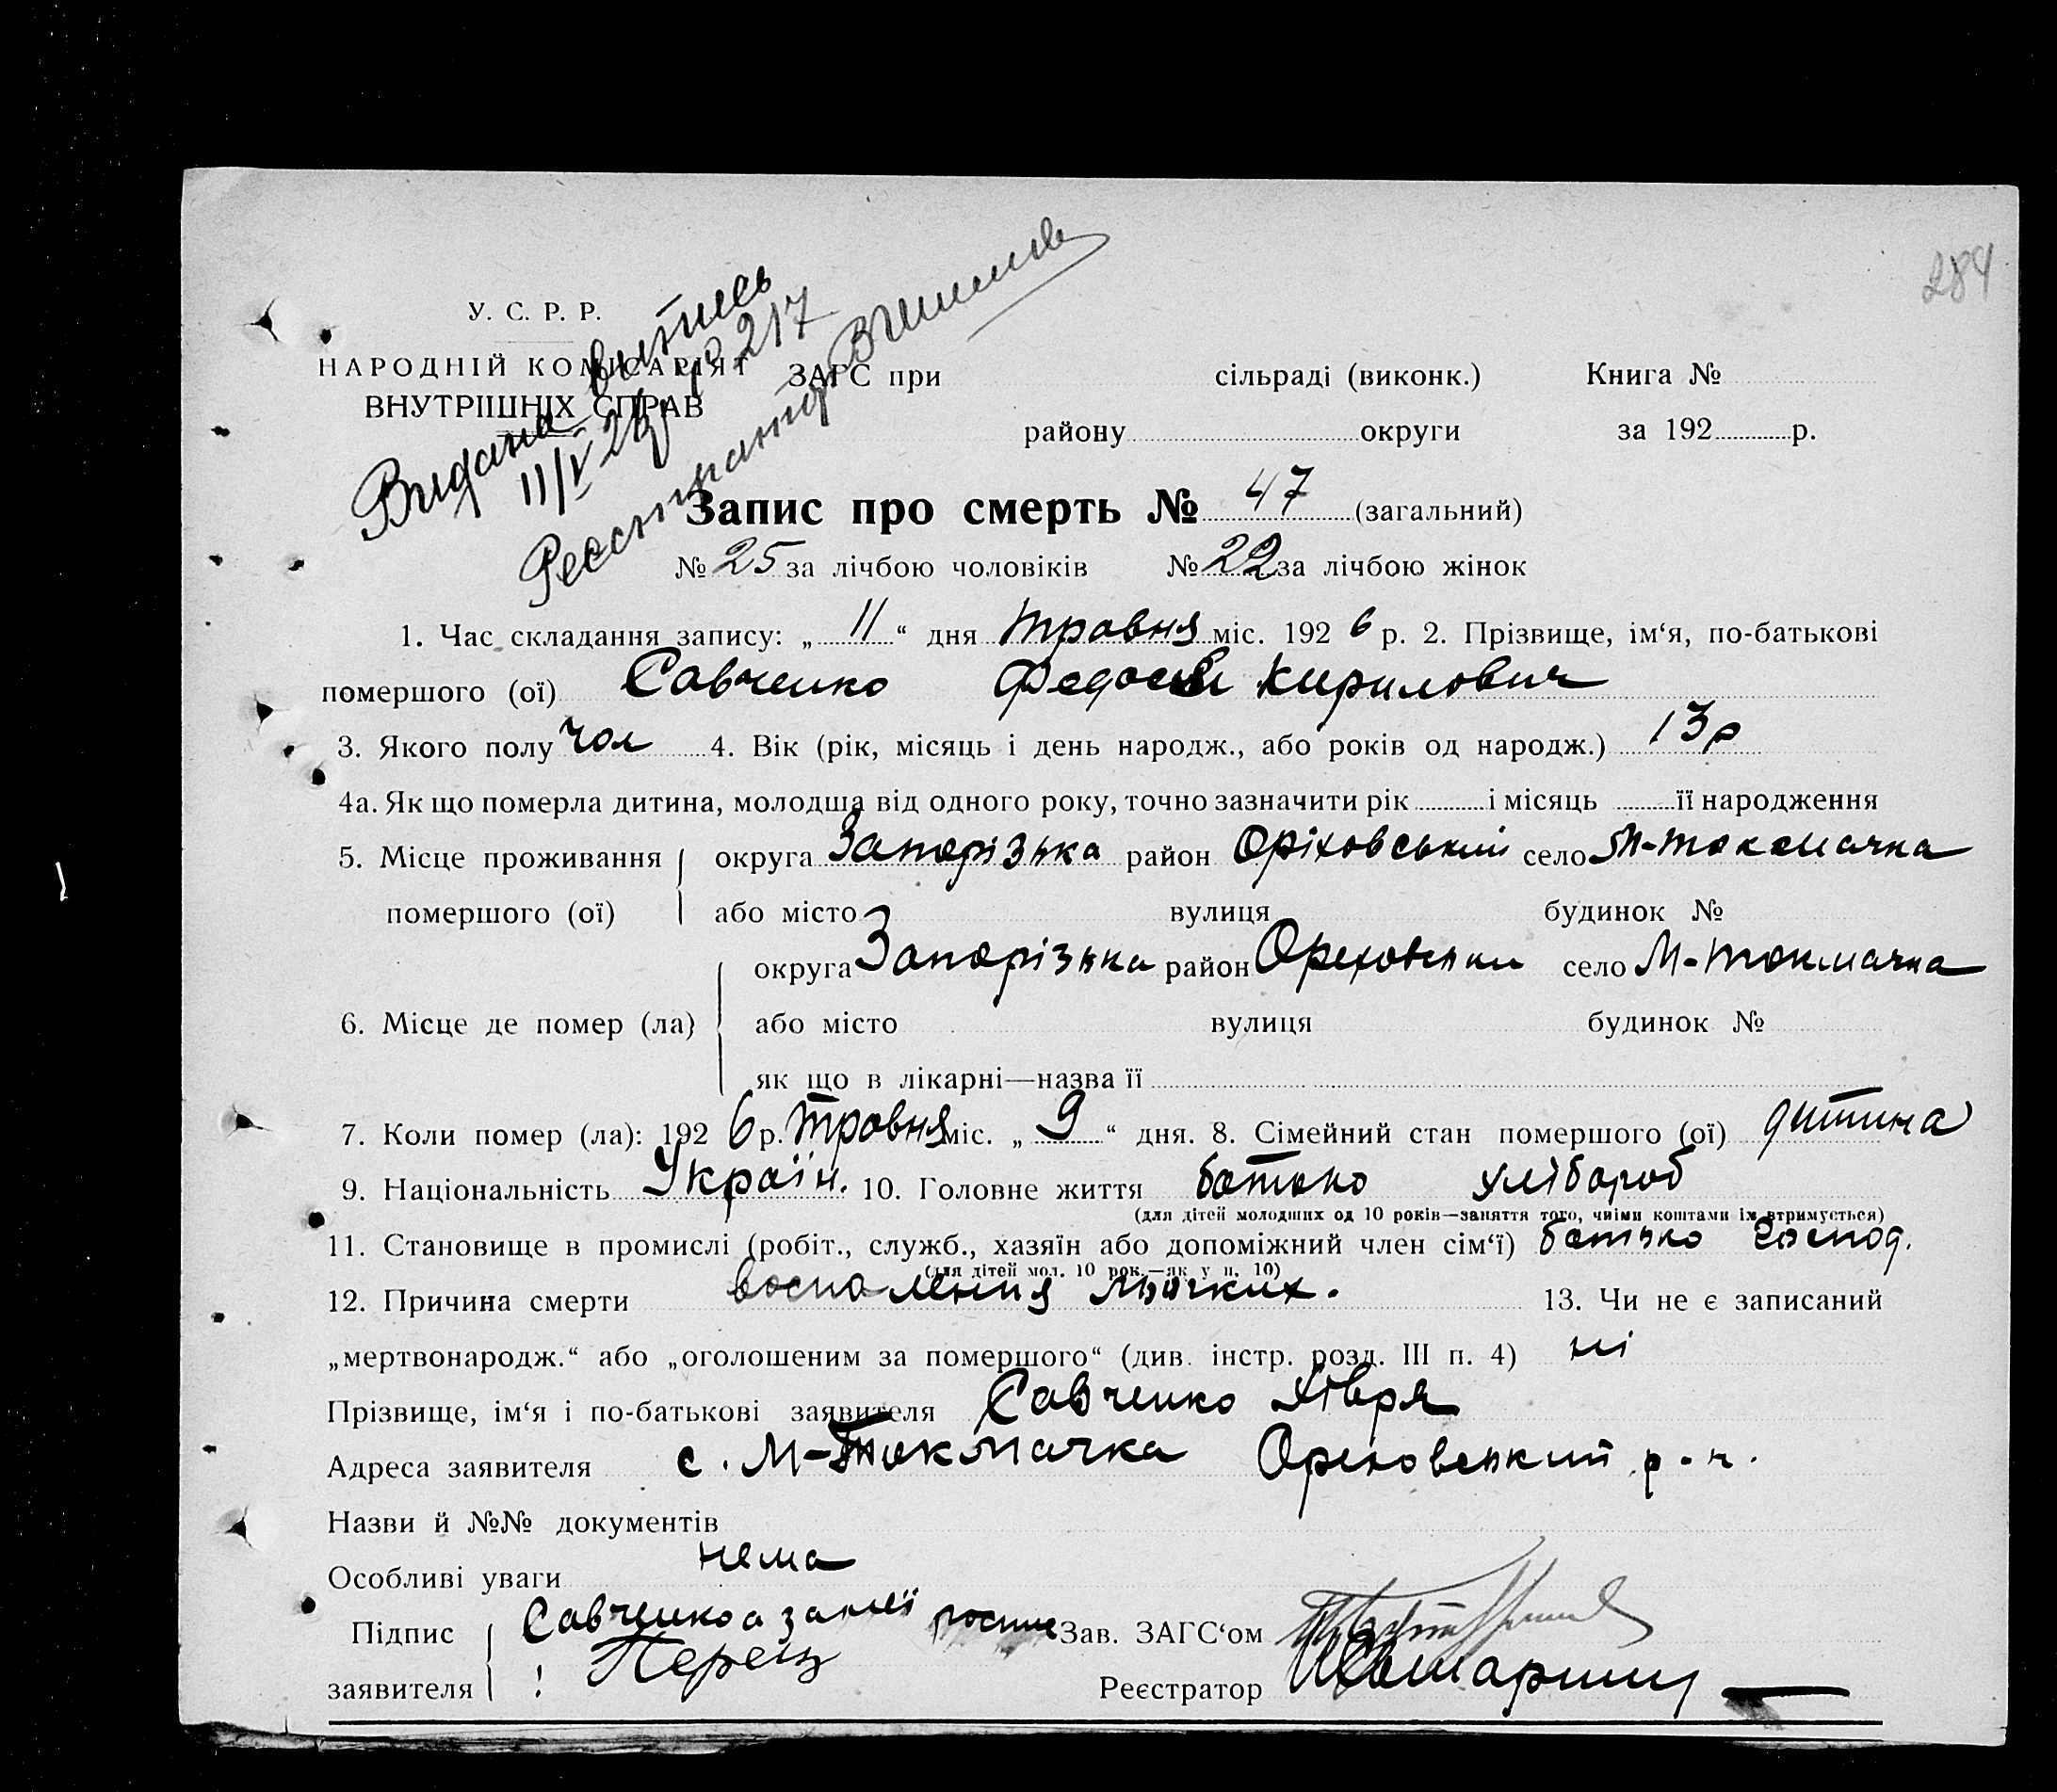 284
У. С. Р. Р.
НАРОДНІЙ КОМИСАРІЯТ
ВНУТРІШНІХ СПРАВ
Видана витись
11/V 26р № 217
Реєстратор
ЗАГС при сільраді (виконк.) Книга №
району округи за 192 р.
Запис про смерть № 47 (загальний)
№ 25 за лічбою чоловіків № 22 за лічбою жінок
1. Час складання запису: „ 11 “ дня травня міс. 192 6 р. 2. Прізвище, ім‘я, по-батькові
помершого (ої) Савченко Федосій Кирилович
3. Якого полу чол 4. Вік (рік, місяць і день народж., або років од народж.) 13р
4а. Як що померла дитина, молодша від одного року, точно зазначити рік і місяць її народження
5. Місце проживання округа Запорізька район Оріховський село М-Токмачка
помершого (ої) або місто вулиця будинок №
округа Запорізька район Ореховський село М-Токмачка
6. Місце де помер (ла) або місто вулиця будинок №
як що в лікарні—назва її
7. Коли помер (ла): 192 6 р. травня міс. „ 9 “ дня. 8. Сімейний стан помершого (ої) дитина
9. Національність Україн. 10. Головне життя батько хлібороб
(для дітей молодших од 10 років—заняття того, чиїми коштами їх втримується)
11. Становище в промислі (робіт., служб., хазяїн або допоміжний член сім‘ї) батько господ.
(для дітей мол. 10 рок.—як у п. 10)
12. Причина смерти воспаления льогких. 13. Чи не є записаний
„мертвонародж.“ або „оголошеним за помершого“ (див. інстр. розд. III п. 4) ні
Прізвище, ім‘я і по-батькові заявителя Савченко Хівря
Адреса заявителя с. М-Токмачка Ореховський р-н.
Назви й №№ документів
Особливі уваги нема
Підпис Савченко а за неї Зав. ЗАГС‘ом
заявителя Реєстратор